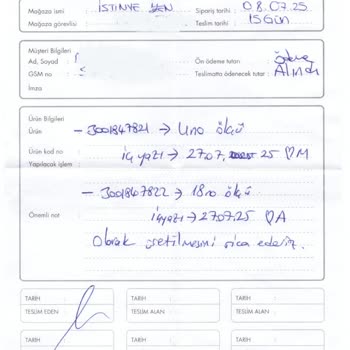 Mağaza ismi : İSTİNYE
Mağaza görevlisi :
Sipariş tarihi : 08.07.25
Teslim tarihi : 15 Gün
Müşteri Bilgileri
Ad, Soyad :
GSM no :
İmza
Ön ödeme tutarı : Ödeme
Teslimatta ödenecek tutar : Alman
Ürün Bilgileri
Ürün - 3001847821 → ölçü
Ürün kod no
Yapılacak işlem : iç yazı → 27.07. 25 ♡M
- 3001847822 → 18no ölçü
Önemli not iç yazı → 27.07.25 ♡A
Olarak üretilmesini rica ederiz.
TARİH :
TESLİM EDEN :
TARİH :
TESLİM ALAN :
TARİH :
TESLİM ALAN :
TARİH :
TARİH :
TARİH :